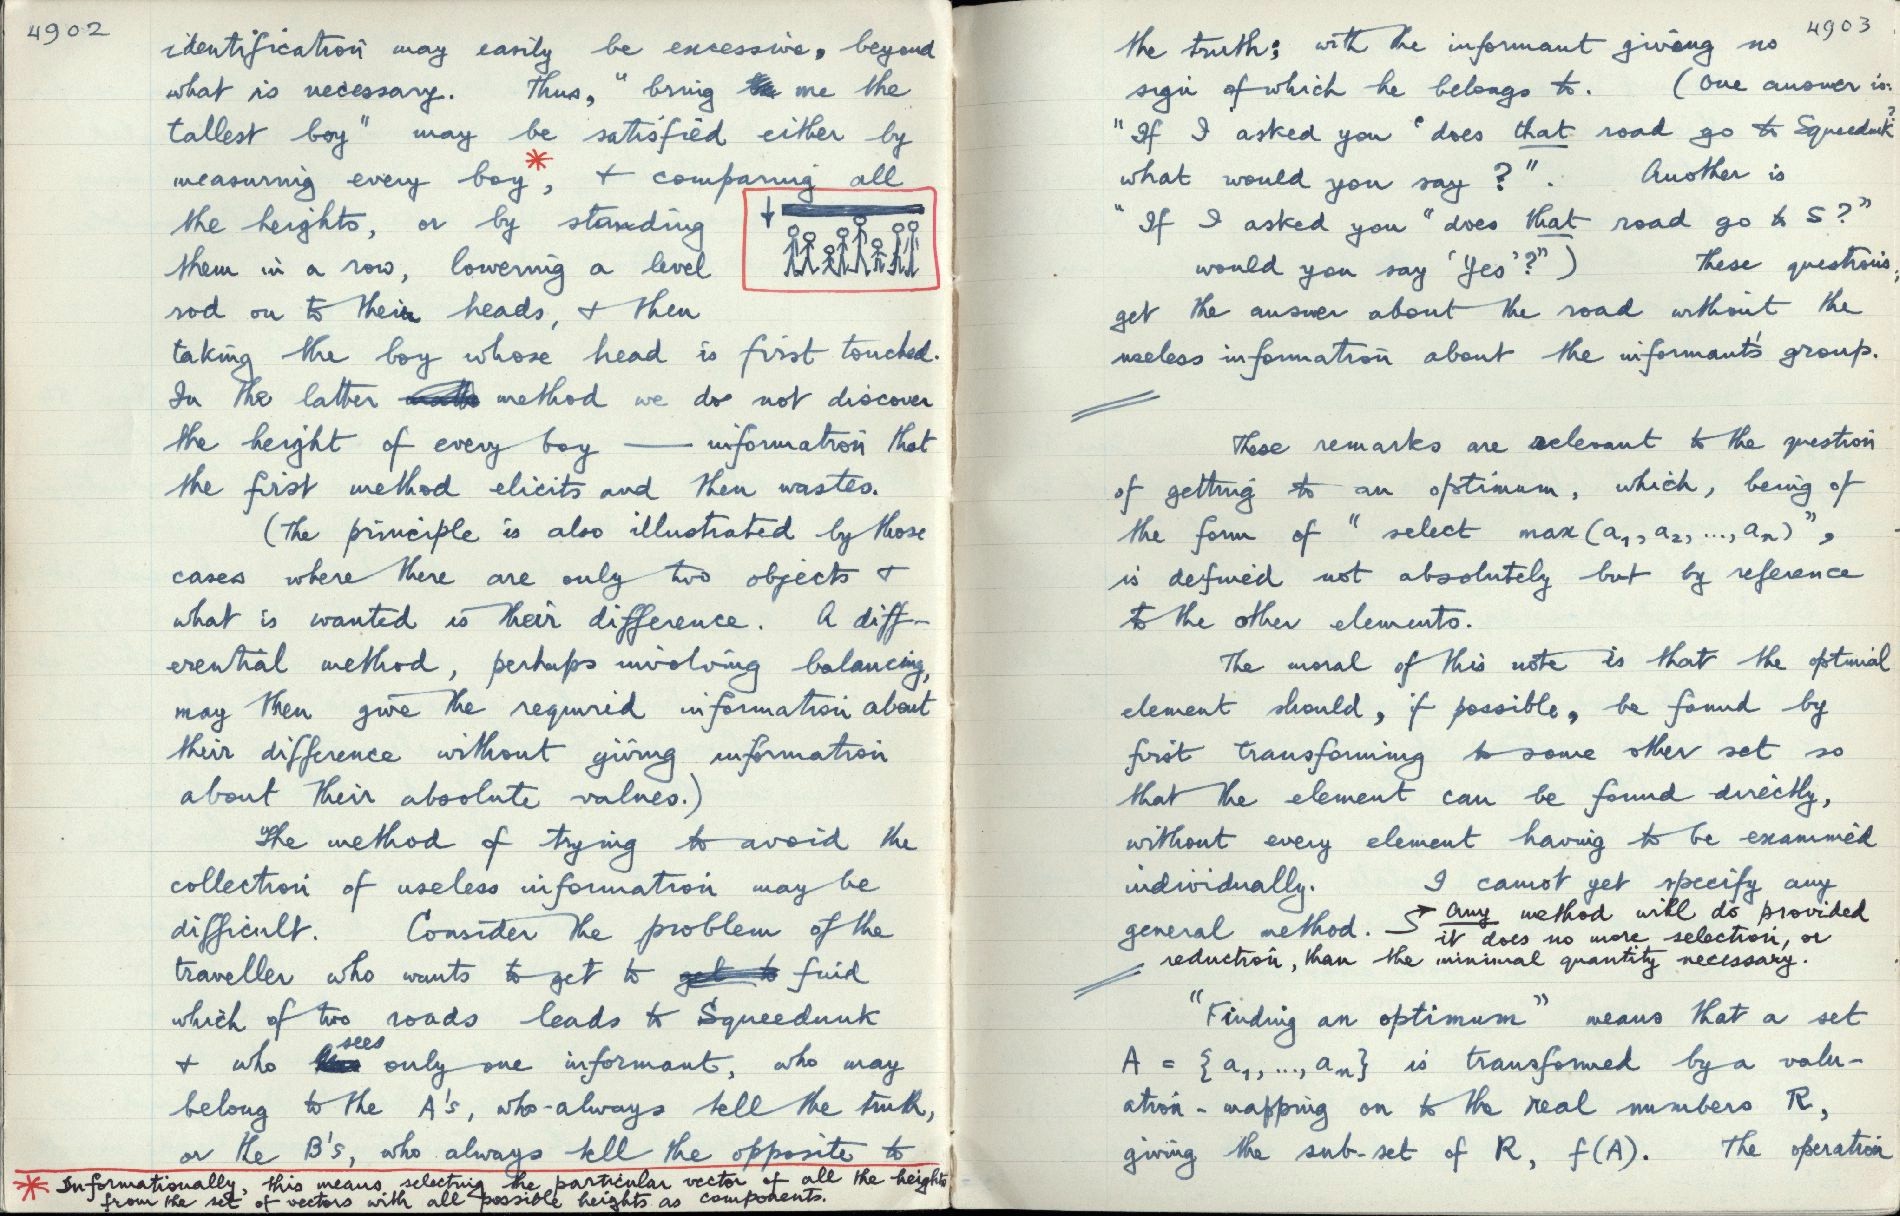 4902
identification may easily be excessive, beyond
what is necessary. Thus, "bring me the
tallest boy" may be satisfied either by
measuring every boy*, + comparing all
the heights, or by standing
them in a row, lowering a level
rod on to their heads, + then
taking the boy whose head is first touched.
In the latter method we do not discover
the height of every boy — information that
the first method elicits and then wastes.
(The principle is also illustrated by those
cases where there are only two objects +
what is wanted is their difference. A diff-
erential method, perhaps involving balancing,
may then give the required information about
their difference without giving information
about their absolute values.)
The method of trying to avoid the
collection of useless information may be
difficult. Consider the problem of the
traveller who wants to get to find
which of two roads leads to Squeedunk
+ who sees only one informant, who may
belong to the A's, who always tell the truth,
or the B's, who always tell the opposite to
* Informationally, this means selecting the particular vector of all the heights
from the set of vectors with all possible heights as components.
4903
the truth; with the informant giving no
sign of which he belongs to. (One answer is:
"If I asked you 'does that road go to Squeedunk?'
what would you say?". Another is
"If I asked you "does that road go to S?"
would you say 'Yes'?") These questions,
get the answer about the road without the
useless information about the informant's group.
These remarks are relevant to the question
of getting to an optimum, which, being of
the form of "select max(a1, a2, ..., an)",
is defined not absolutely but by reference
to the other elements.
The moral of this note is that the optimal
element should, if possible, be found by
first transforming to some other set so
that the element can be found directly,
without every element having to be examined
individually. I cannot yet specify any
general method. → Any method will do provided
it does no more selection, or
reduction, than the minimal quantity necessary.
"Finding an optimum" means that a set
A = {a1, ..., an} is transformed by a valu-
ation-mapping on to the real numbers R,
giving the sub-set of R, f(A). The operation